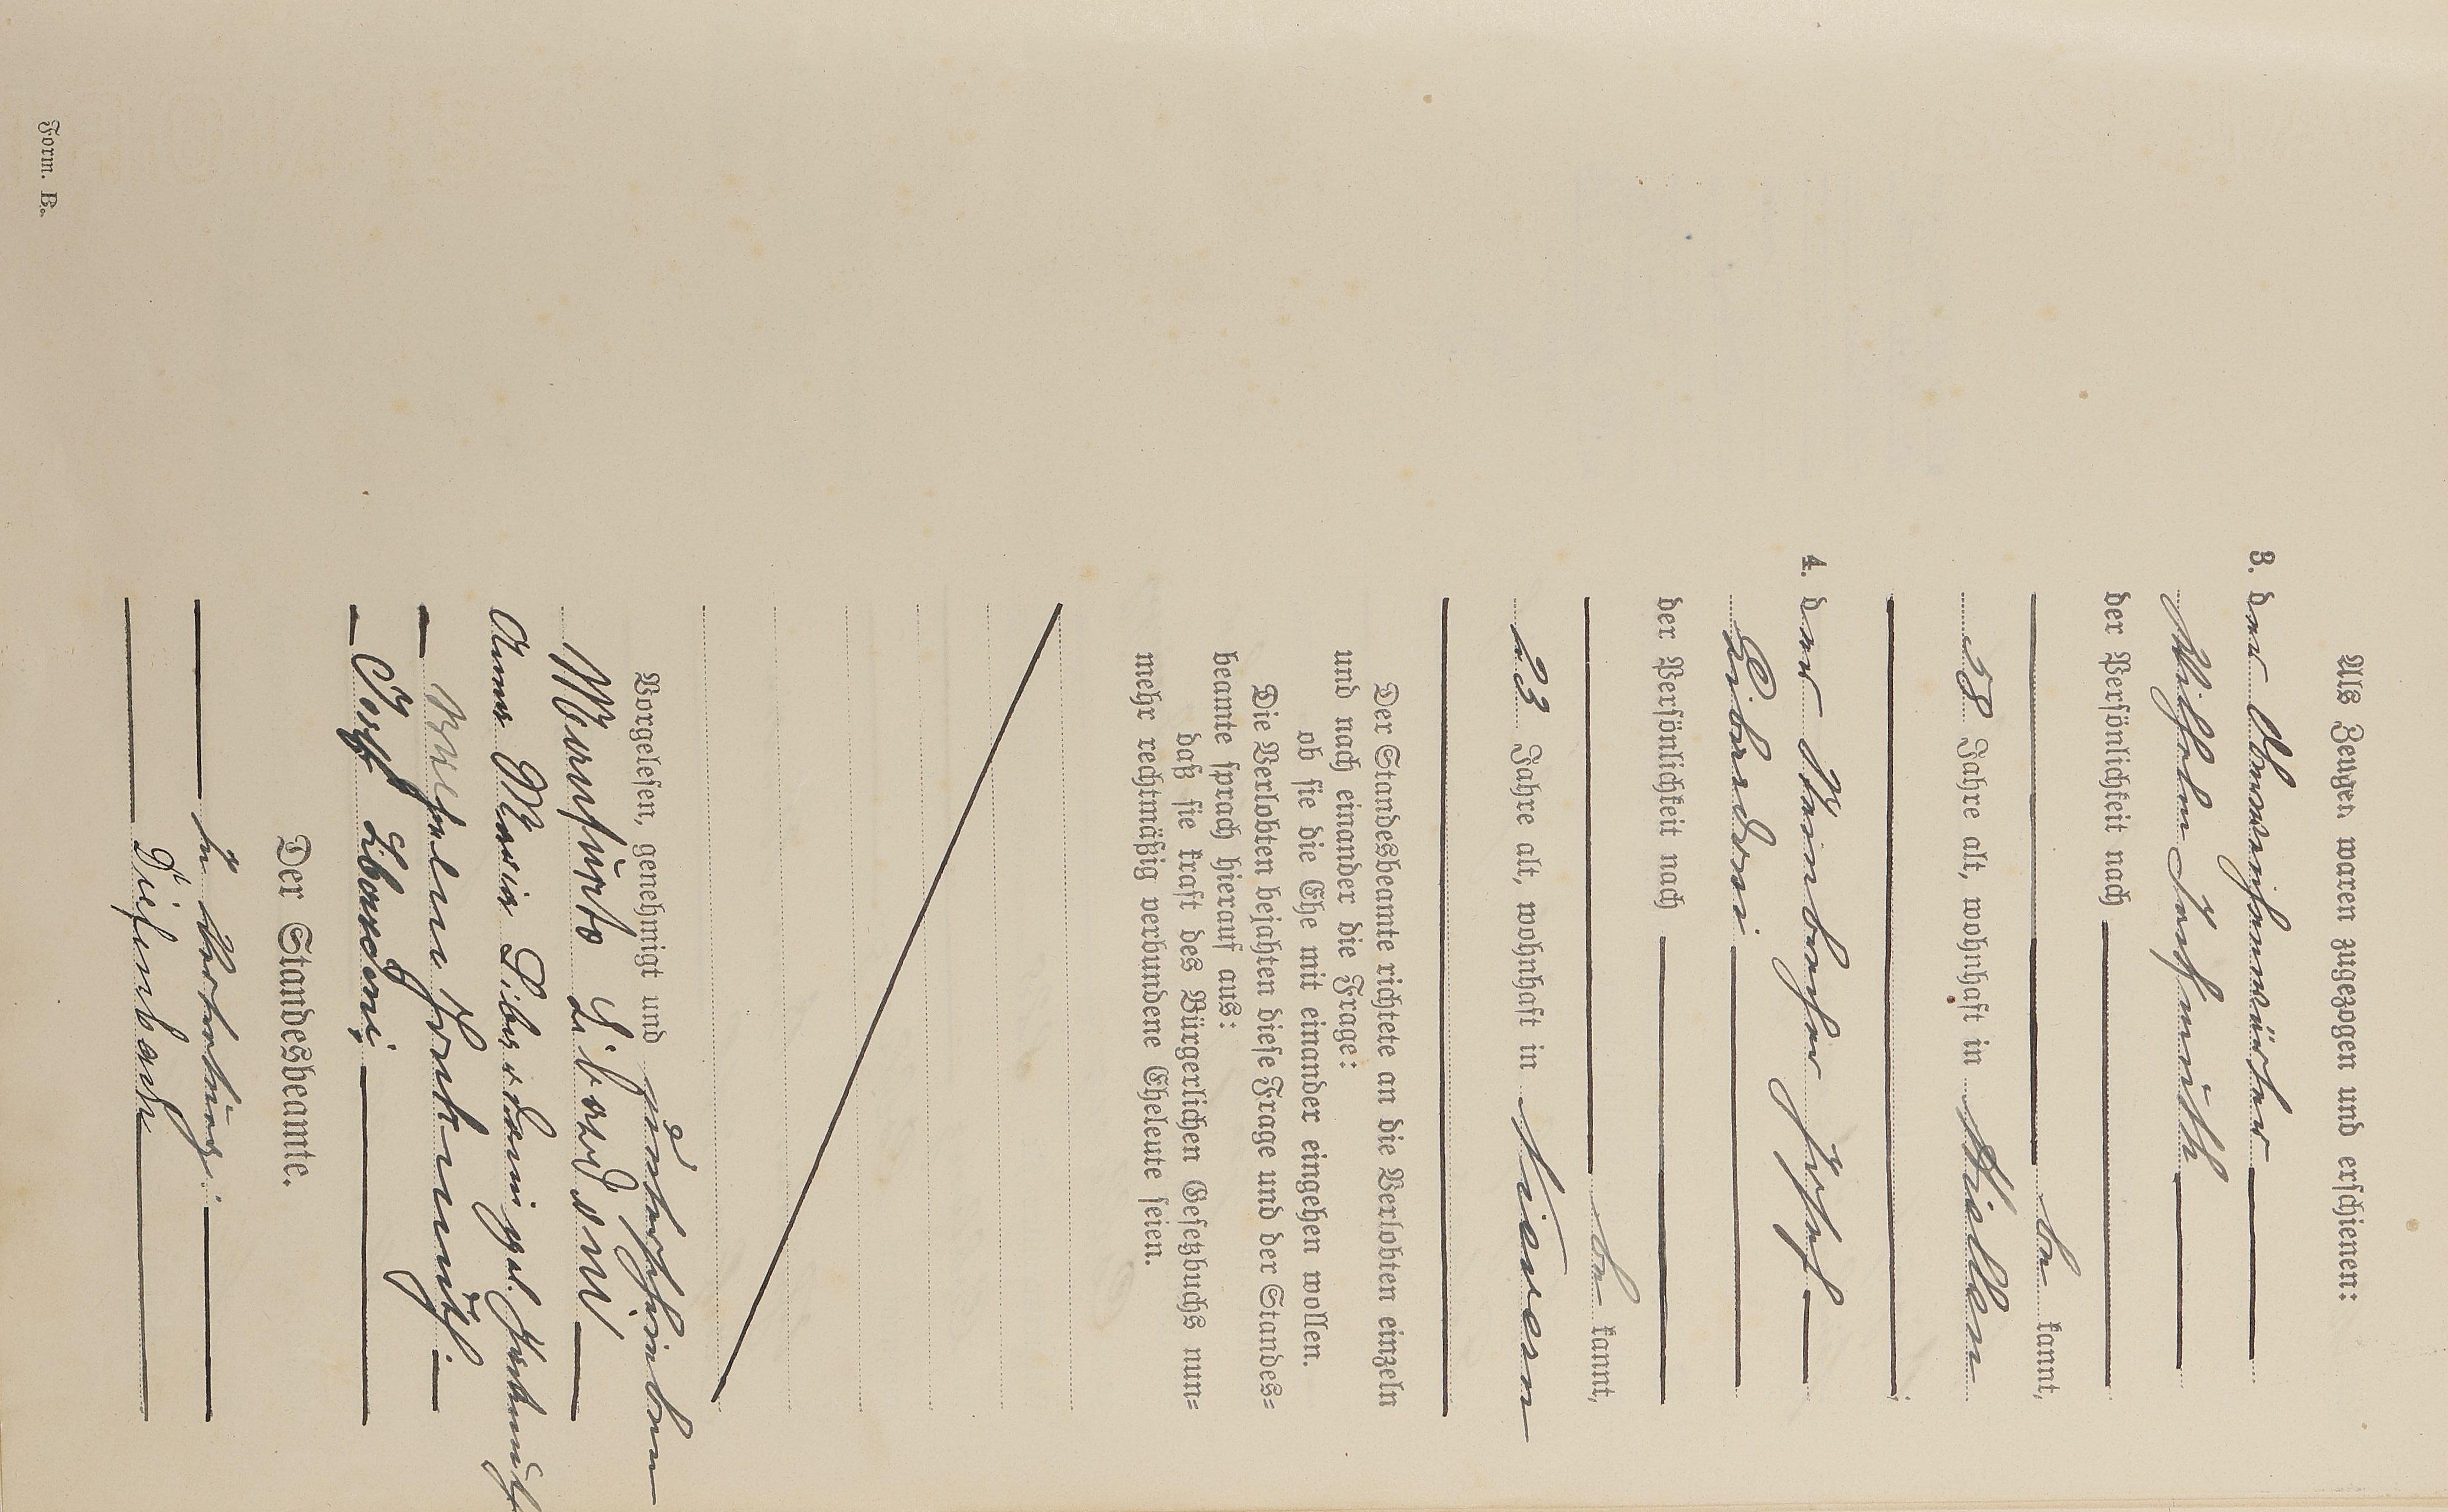 Als Zeugen waren zugezogen und erschienen:
3. der
Wilhelm
der Persönlichkeit nach
be kannt,
38 Jahre alt, wohnhaft in
4. der Steinbrecher Josef
Libardoni
der Persönlichkeit nach
be kannt,
23 Jahre alt, wohnhaft in Nievern
Der Standesbeamte richtete an die Verlobten einzeln
und nach einander die Frage:
ob sie die Ehe mit einander eingehen wollen.
Die Verlobten bejahten diese Frage und der Standes=
beamte sprach hierauf aus:
daß sie kraft des Bürgerlichen Gesetzbuchs nun=
mehr rechtmäßig verbundene Eheleute seien.
Vorgelesen, genehmigt und unterschrieben
Libardoni
Anna Maria Libardoni geb.
Wilhelm
Josef Libardoni
Der Standesbeamte.
In Vertretung:
Diefenbach
Form. B.